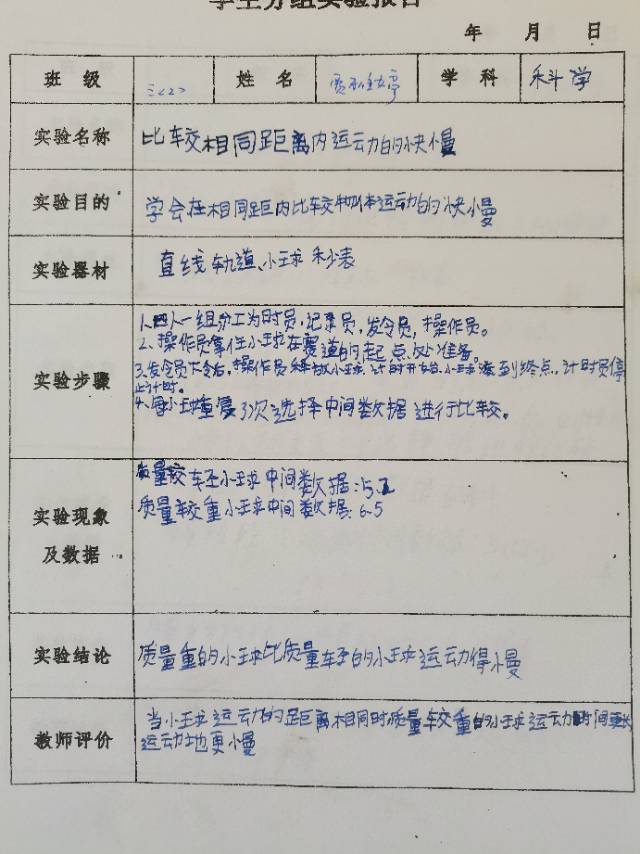 学生分组实验报告
年 月 日
班 级 三<2> 姓 名 学 科 科学
实验名称 比较相同距离内运动的快慢
实验目的 学会在相同距内比较物体运动的快慢
实验器材 直线轨道、小球 秒表
实验步骤
1、四人一组分工为时员,记录员,发令员,操作员。
2、操作员拿住小球在赛道的起点处准备。
3、发令员下令后,操作员释放小球,计时开始,小球滚到终点,计时员停
止计时。
4、每小球重复3次选择中间类数据进行比较。
实验现象
及数据
质量较轻小球中间类数据:5.2
质量较重小球中间类数据:6.5
实验结论 质量重的小球比质量轻的小球运动得慢
教师评价
当小球运动的距离相同时质量较重的小球运动时间更长
运动地更慢